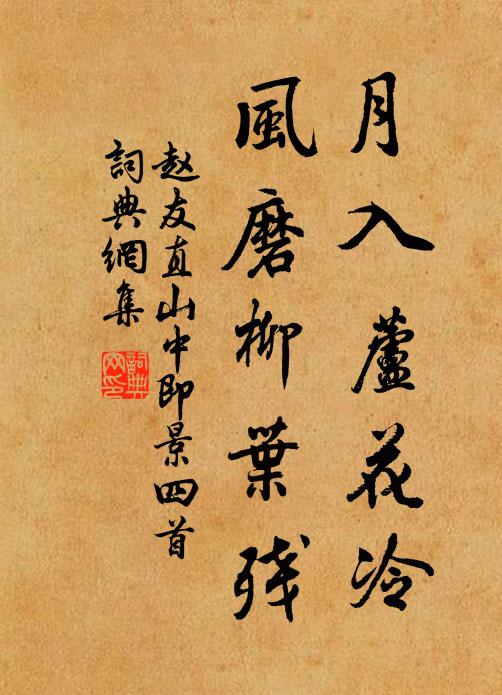 月入蘆花冷
風磨柳葉残
赵友直山中即景四首
詞典網集
詞典
网印